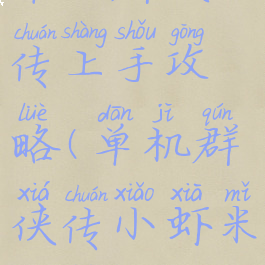 chuán shàng shǒu gōng
传上手攻
lüè dān jī qún
略(单机群
xiá chuán xiǎo xiā mǐ
侠传小虾米